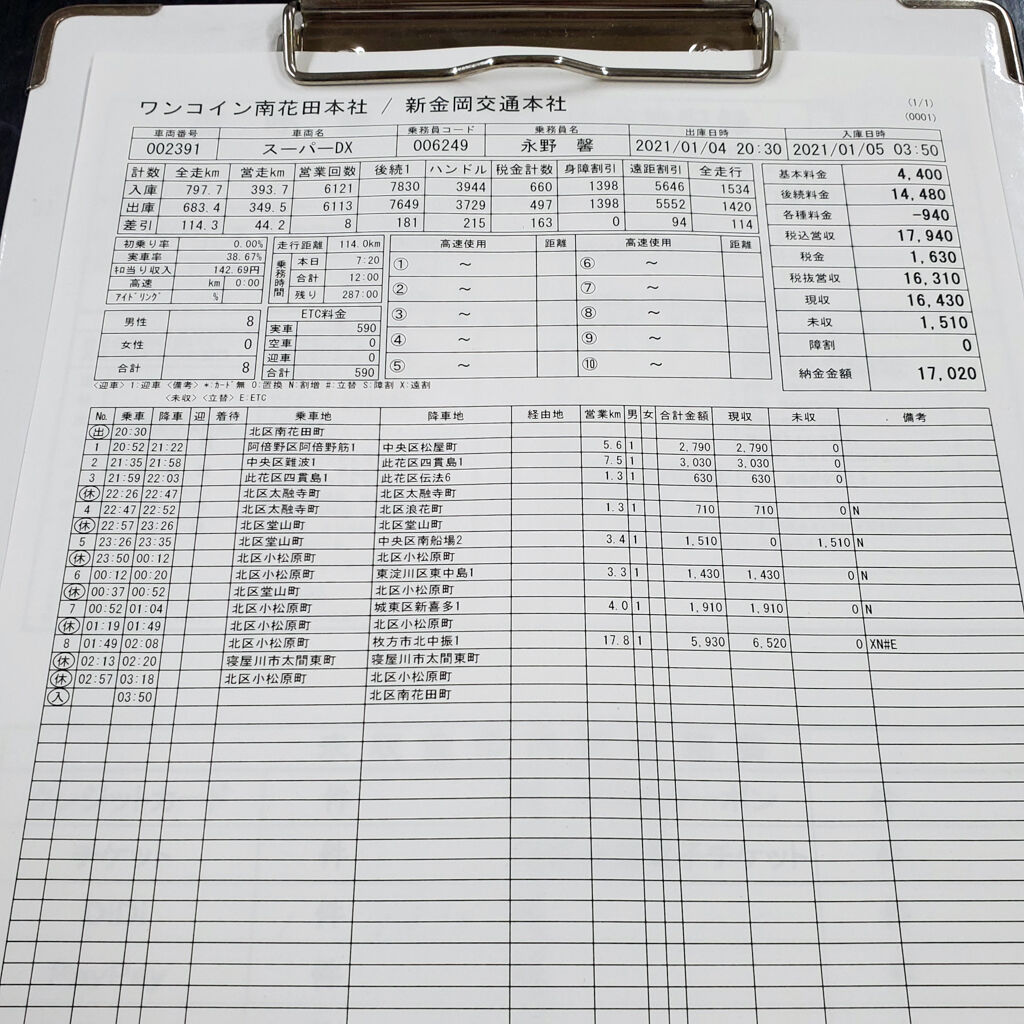 ワンコイン南花田本社 / 新金岡交通本社
(1/1)
(0001)
車両番号 車両名 乗務員コード 乗務員名 出庫日時 入庫日時
002391 スーパーDX 006249 永野 馨 2021/01/04 20:30 2021/01/05 03:50
計数 全走km 営走km 営業回数 後続1 ハンドル 税金計数 身障割引 遠距割引 全走行
入庫 797.7 393.7 6121 7830 3944 660 1398 5646 1534
出庫 683.4 349.5 6113 7649 3729 497 1398 5552 1420
差引 114.3 44.2 8 181 215 163 0 94 114
基本料金 4,400
後続料金 14,480
各種料金 -940
税込営収 17,940
税金 1,630
税抜営収 16,310
現収 16,430
未収 1,510
障割 0
納金金額 17,020
初乗り率 0.00%
実車率 38.67%
キロ当り収入 142.69円
高速 km 0:00
アイドリング %
走行距離 114.0km
乗務時間 本日 7:20
合計 12:00
残り 287:00
高速使用 距離 高速使用 距離
① ~ ⑥ ~
② ~ ⑦ ~
③ ~ ⑧ ~
④ ~ ⑨ ~
⑤ ~ ⑩ ~
男性 8
女性 0
合計 8
ETC料金
実車 590
空車 0
迎車 0
合計 590
<迎車> 1:迎車 <備考> *:カード無 O:置換 N:割増 #:立替 S:障割 X:遠割
<未収> <立替> E:ETC
No. 乗車 降車 迎 着待 乗車地 降車地 経由地 営業km 男 女 合計金額 現収 未収 備考
出 20:30 北区南花田町
1 20:52 21:22 阿倍野区阿倍野筋1 中央区松屋町 5.6 1 2,790 2,790 0
2 21:35 21:58 中央区難波1 此花区四貫島1 7.5 1 3,030 3,030 0
3 21:59 22:03 此花区四貫島1 此花区伝法6 1.3 1 630 630 0
休 22:26 22:47 北区太融寺町 北区太融寺町
4 22:47 22:52 北区太融寺町 北区浪花町 1.3 1 710 710 0 N
休 22:57 23:26 北区堂山町 北区堂山町
5 23:26 23:35 北区堂山町 中央区南船場2 3.4 1 1,510 0 1,510 N
休 23:50 00:12 北区小松原町 北区小松原町
6 00:12 00:20 北区小松原町 東淀川区東中島1 3.3 1 1,430 1,430 0 N
休 00:37 00:52 北区堂山町 北区小松原町
7 00:52 01:04 北区小松原町 城東区新喜多1 4.0 1 1,910 1,910 0 N
休 01:19 01:49 北区小松原町 北区小松原町
8 01:49 02:08 北区小松原町 枚方市北中振1 17.8 1 5,930 6,520 0 XN#E
休 02:13 02:20 寝屋川市太間東町 寝屋川市太間東町
休 02:57 03:18 北区小松原町 北区小松原町
入 03:50 北区南花田町